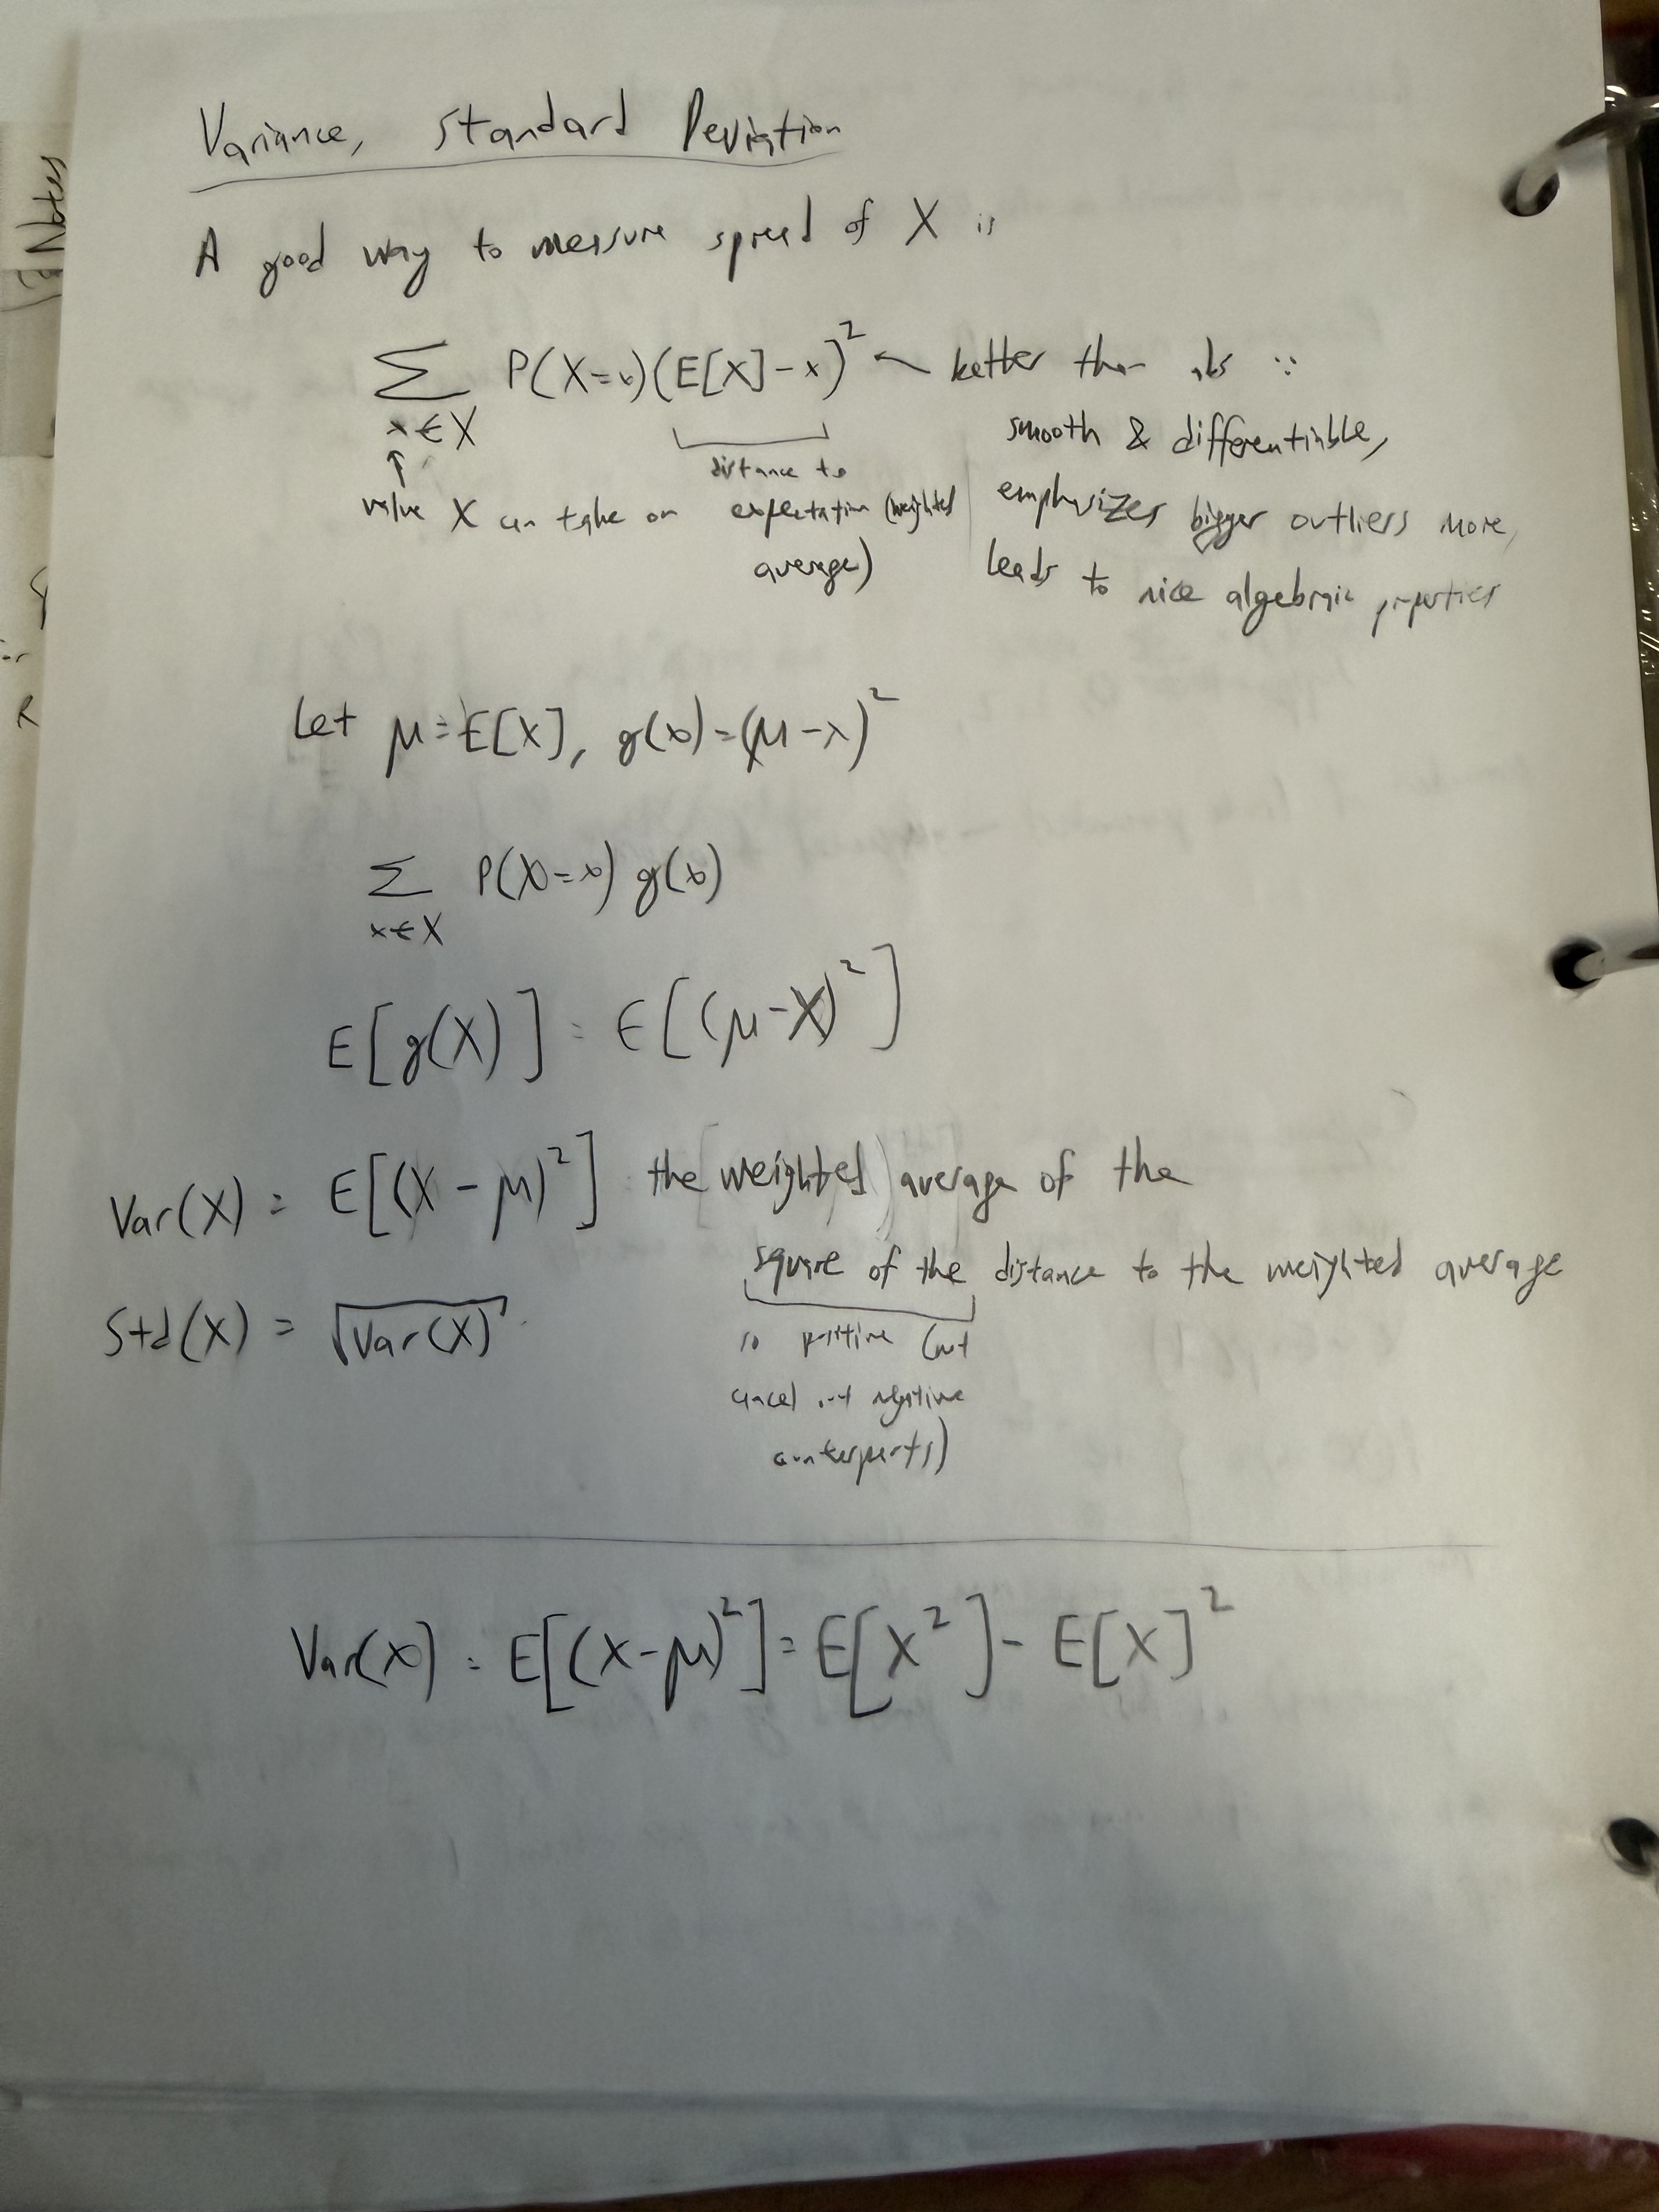 Notes
Variance, Standard Deviation
A good way to measure spread of X is
∑ P(X=x)(E[X]-x)² better than abs ∵
x∈X
smooth & differentiable,
distance to
value X can take on expectation (weighted
average)
emphasizes bigger outliers more,
leads to nice algebraic properties
Let μ=E[X], g(x)=(μ-x)²
∑ P(X=x) g(x)
x∈X
E[g(X)] = E[(μ-X)²]
Var(X) = E[(X-μ)²] the (weighted) average of the
square of the distance to the weighted average
Std(X) = √Var(X)
so positive (not
cancel out negative
counterparts)
Var(X) = E[(X-μ)²] = E[X²] - E[X]²